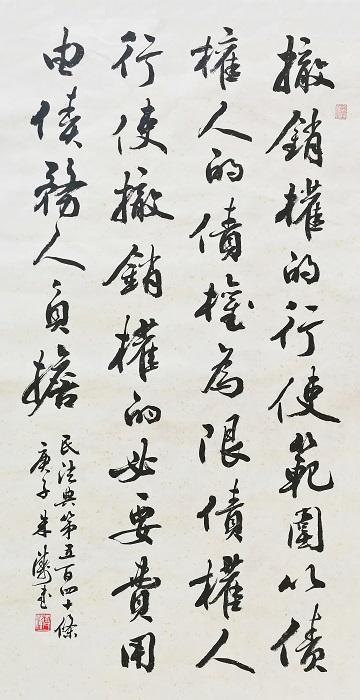 撤銷權的行使範圍以債
權人的債權為限債權人
行使撤銷權的必要費用
由債務人負擔
民法典第五百四十條
庚子朱